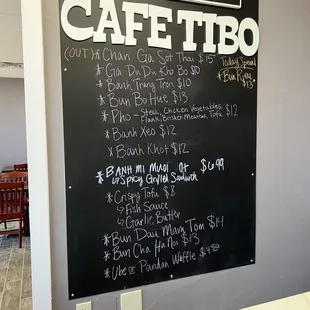 CAFE TIBO
(OUT) * Chan Ga Sot Thai $15
Today Special
* Bun Rieu
$13
* Goi Du Du Kho Bo $10
* Banh Trang Tron $10
* Bun Bo Hue $13
* Pho - Steak, Chicken, Vegetables, $12
Flank, Brisket, Meatball, Tofu
* Banh Xeo $12
* Banh Khot $12
* BANH MI MUOI OT $6.99
↳ Spicy Grilled Sandwich
* Crispy Tofu $8
↳ Fish Sauce
↳ Garlic Butter
* Bun Dau Mam Tom $14
* Bun Cha Ha Noi $13
* Ube or Pandan Waffle